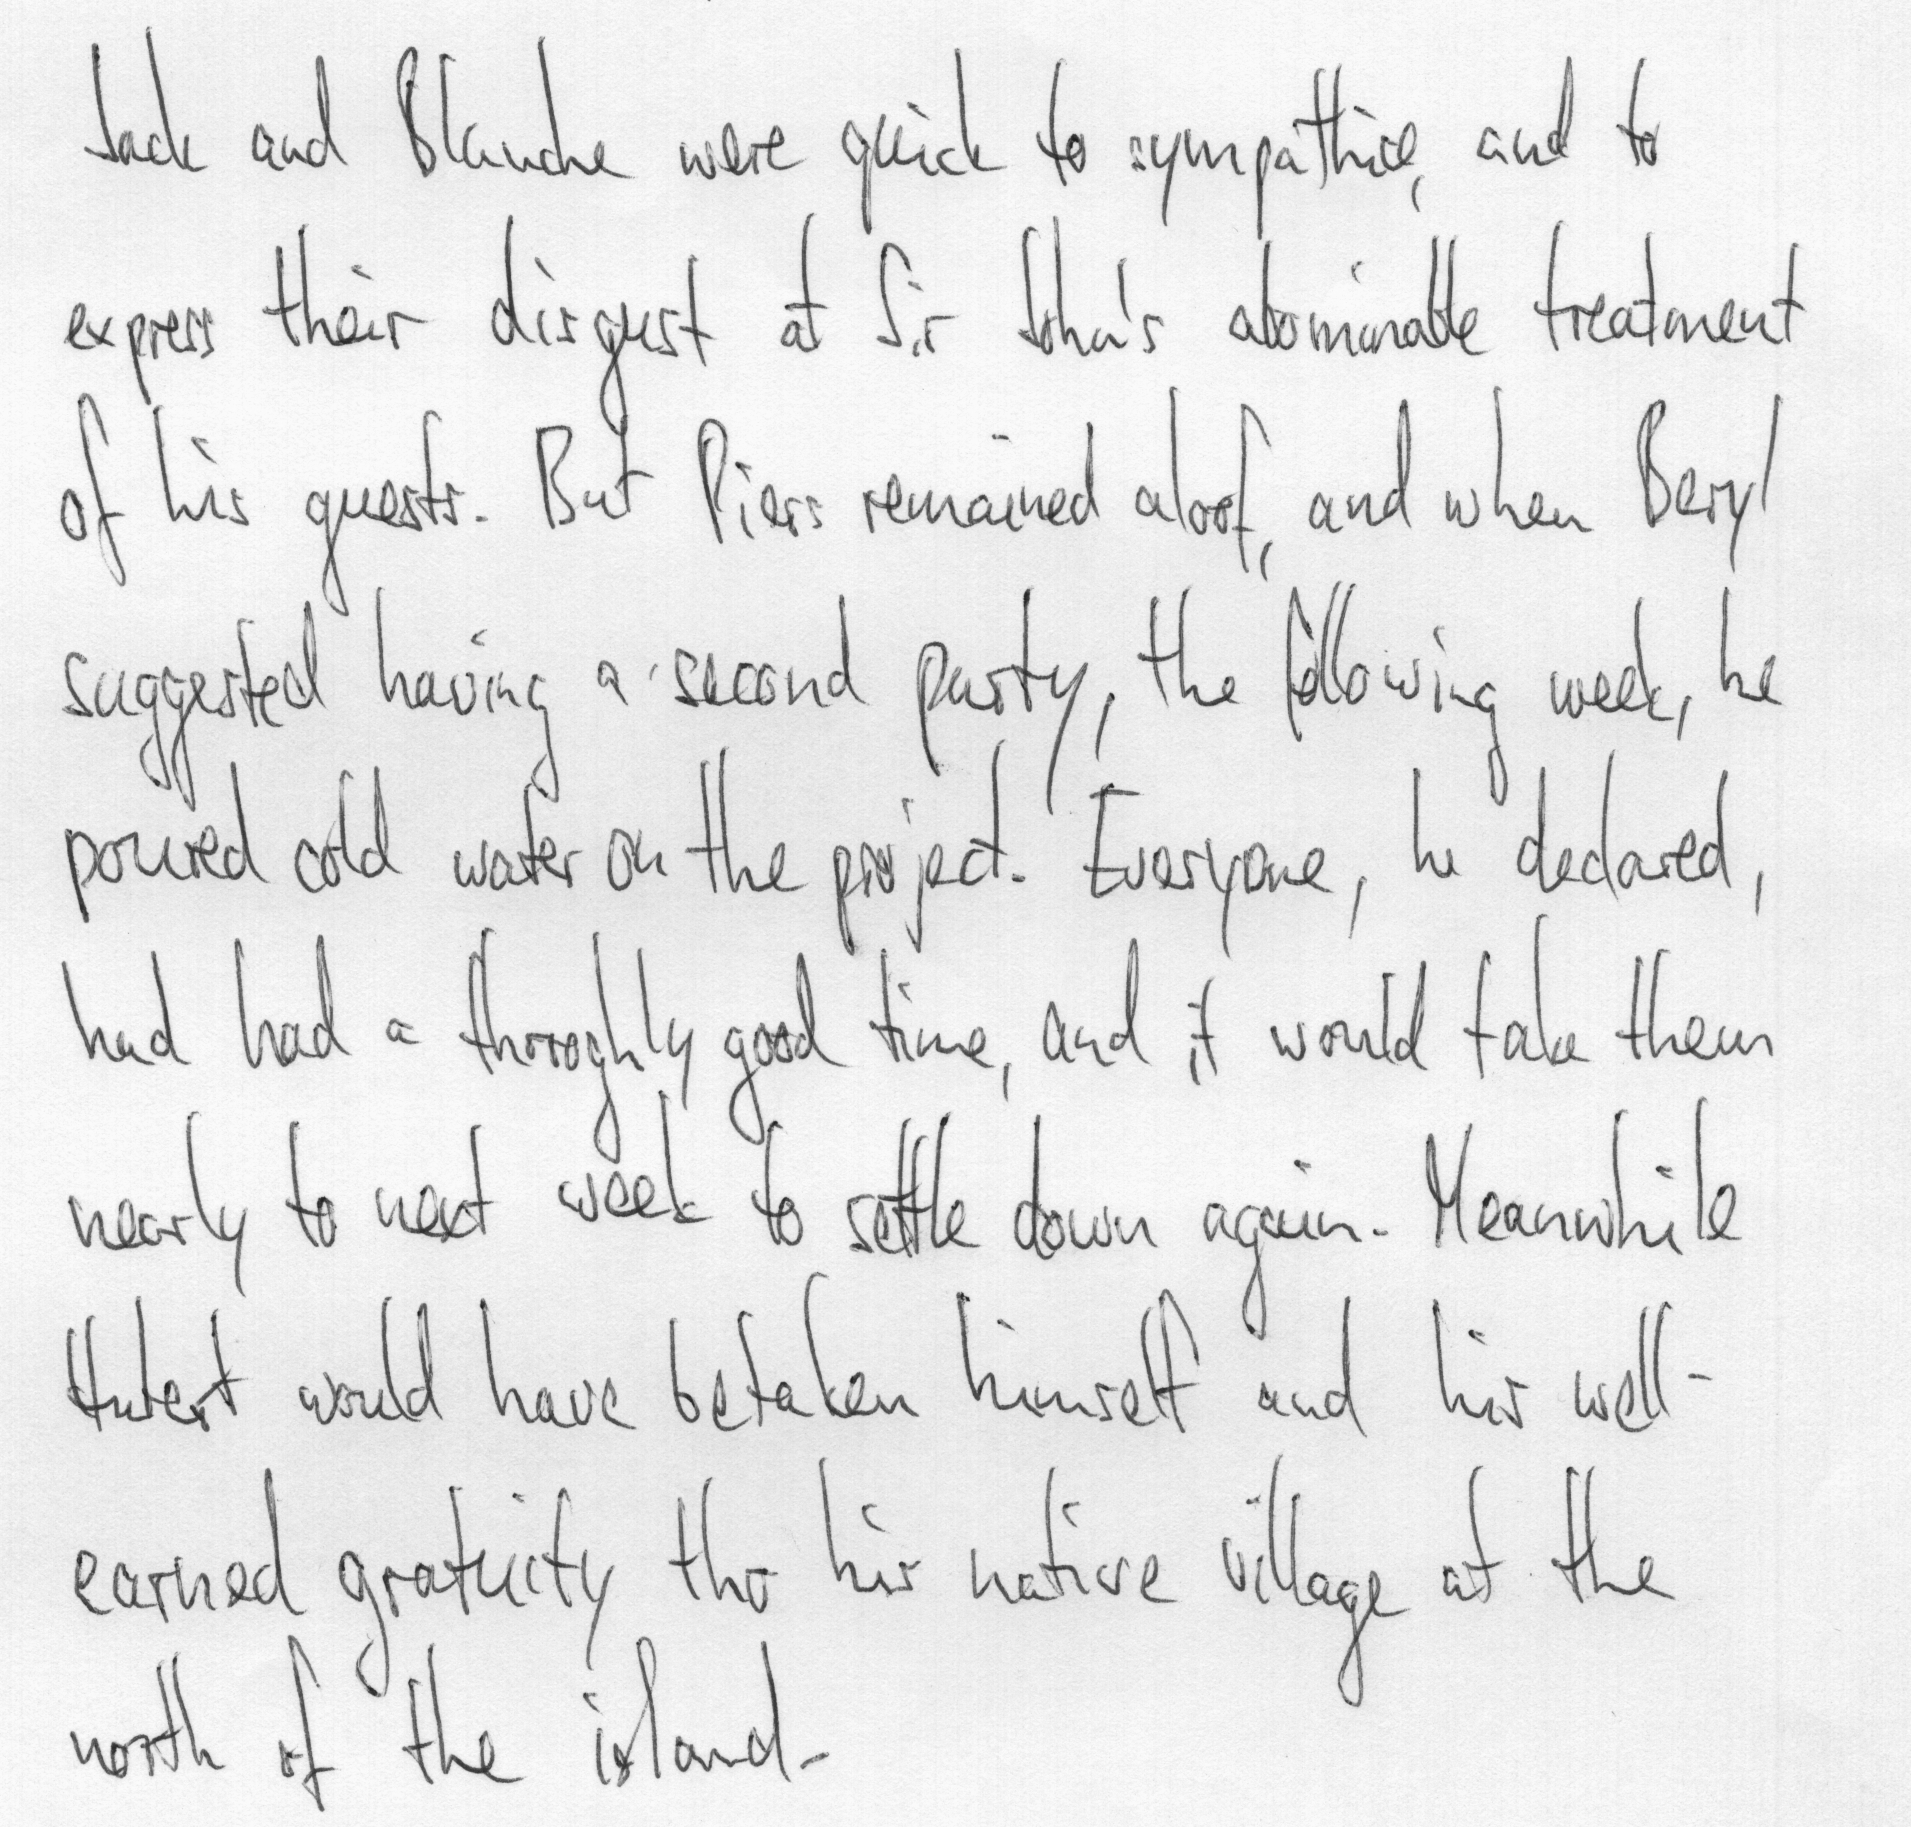 Jack and Blanche were quick to sympathice, and to
express their disgust at Sir John's abominable treatment
of his guests. But Piers remained aloof, and when Beryl
suggested having a second party, the following week, he
poured cold water on the project. Everyone, he declared,
had had a throoghly good time, and it would take them
nearly to next week to settle down again. Meanwhile
Hubert would have betaken himself and his well-
earned gratuity tho his native village at the
north of the island.